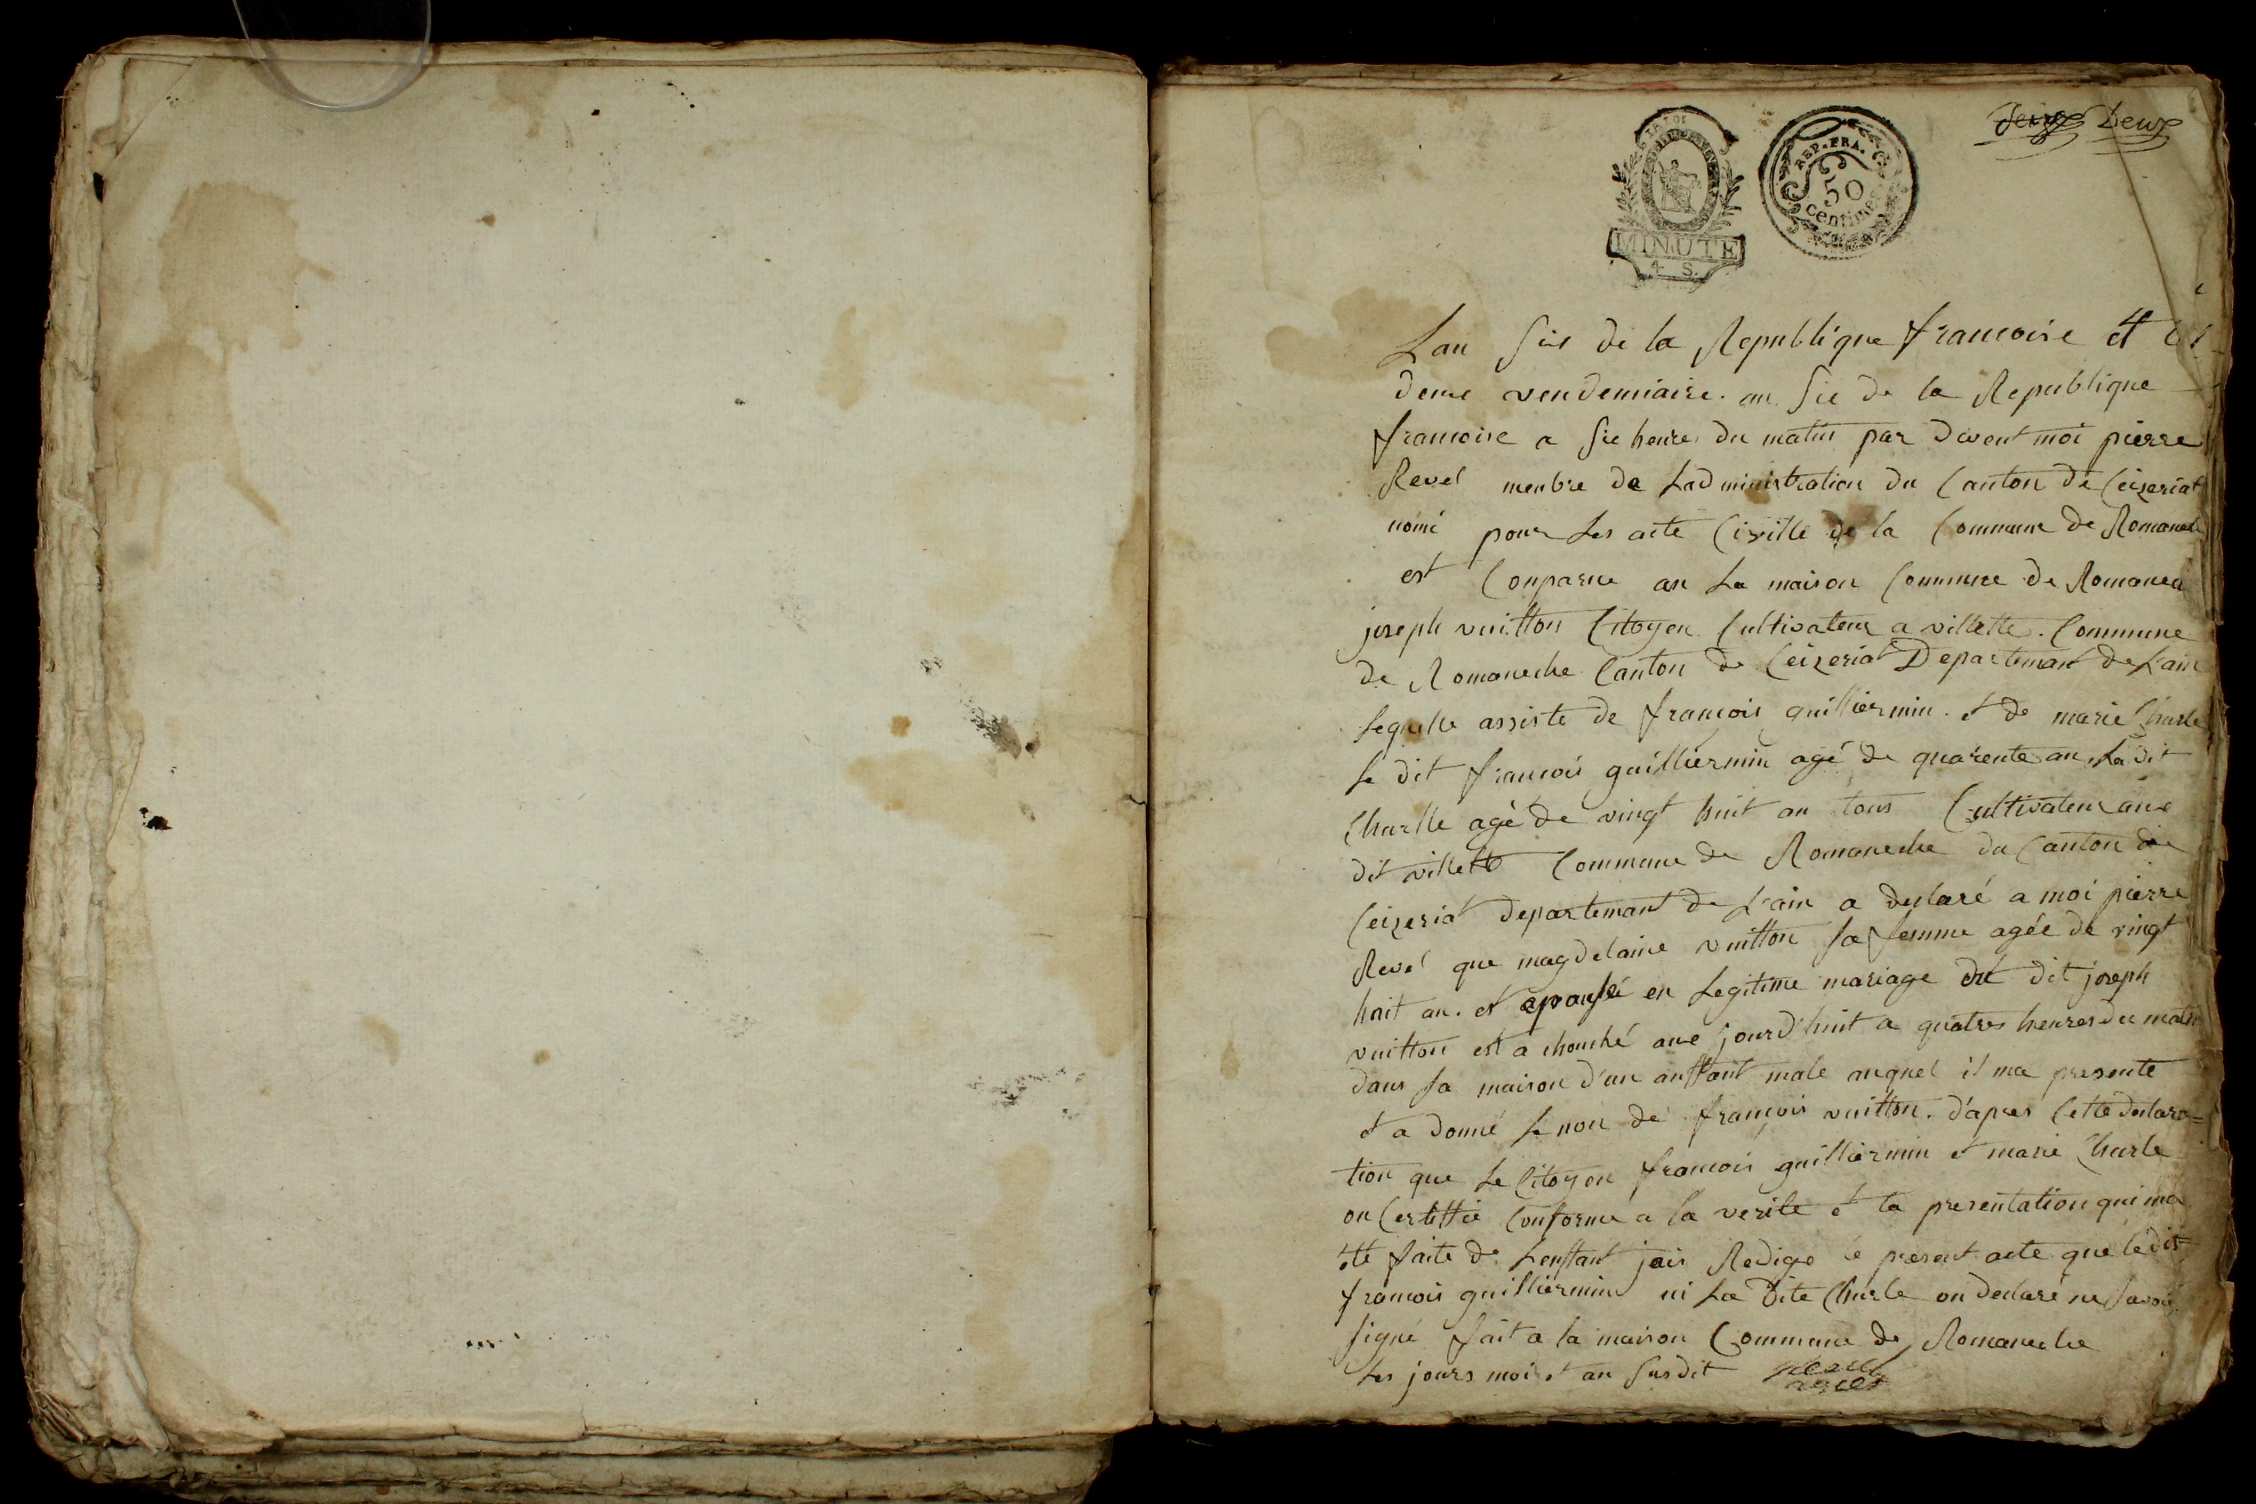 Deux Deux
LA LOI
REP. FRA.
50
centimes
MINUTE
4 S.
Lan Six de la Republique francoise et le
deuxe vendemiaire. an Six de la Republique
francoise a Six heures du matin par devent moi pierre
Revel menbre de Ladministration du Canton de Ceizeriat
nomé pour Les acte Civille de la Commune de Romaneche
est Conparue an La maison Commune de Romanea
joseph vuitton Citoyen Cultivateur a villette. Commune
de Romaneche Canton de Ceizeriat Departemant de L'ain
Lequelle assiste de françois guilliermin. et de marie Charle
Le dit francois guilliermin agé de quarente an, La dit
Charlle agé de vingt huit an tous Cultivateur aux
dit villette Commune de Romaneche du Canton de
Ceizeriat departemant de L'ain a declaré a moi pierre
Revel que magdelaine vuitton Sa femme agée de vingt
huit an. et epousée en Legitime mariage du dit joseph
vuitton est a chouché aux jourd'huit a quatres heures du matin
dans Sa maison d'un anffant male auquel il ma presente
et a donné Le non de françois vuitton. d'apres Cette declara=
tion que Le Citoyen francois guilliermin et marie Charle
on Certiffié Conforme a la verite et la presentation qui ma
été faite de Lenffant jais Redige le present acte que le dit
francois guilliermin ni La dite Charle on declaré ne Savoir
Signé fait a la maison Commune de Romaneche
Les jours mois et an Susdit pierre
revel